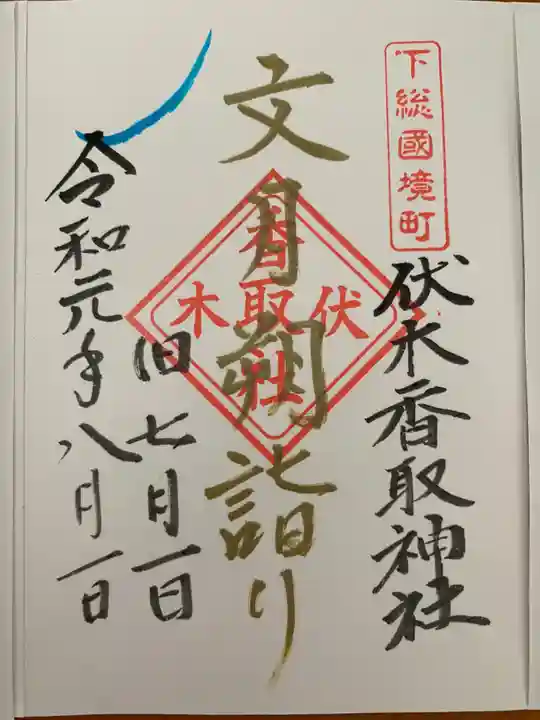 下総國境町
伏木香取神社
文月朔詣り
伏木
香取社
旧七月一日
令和元年八月一日